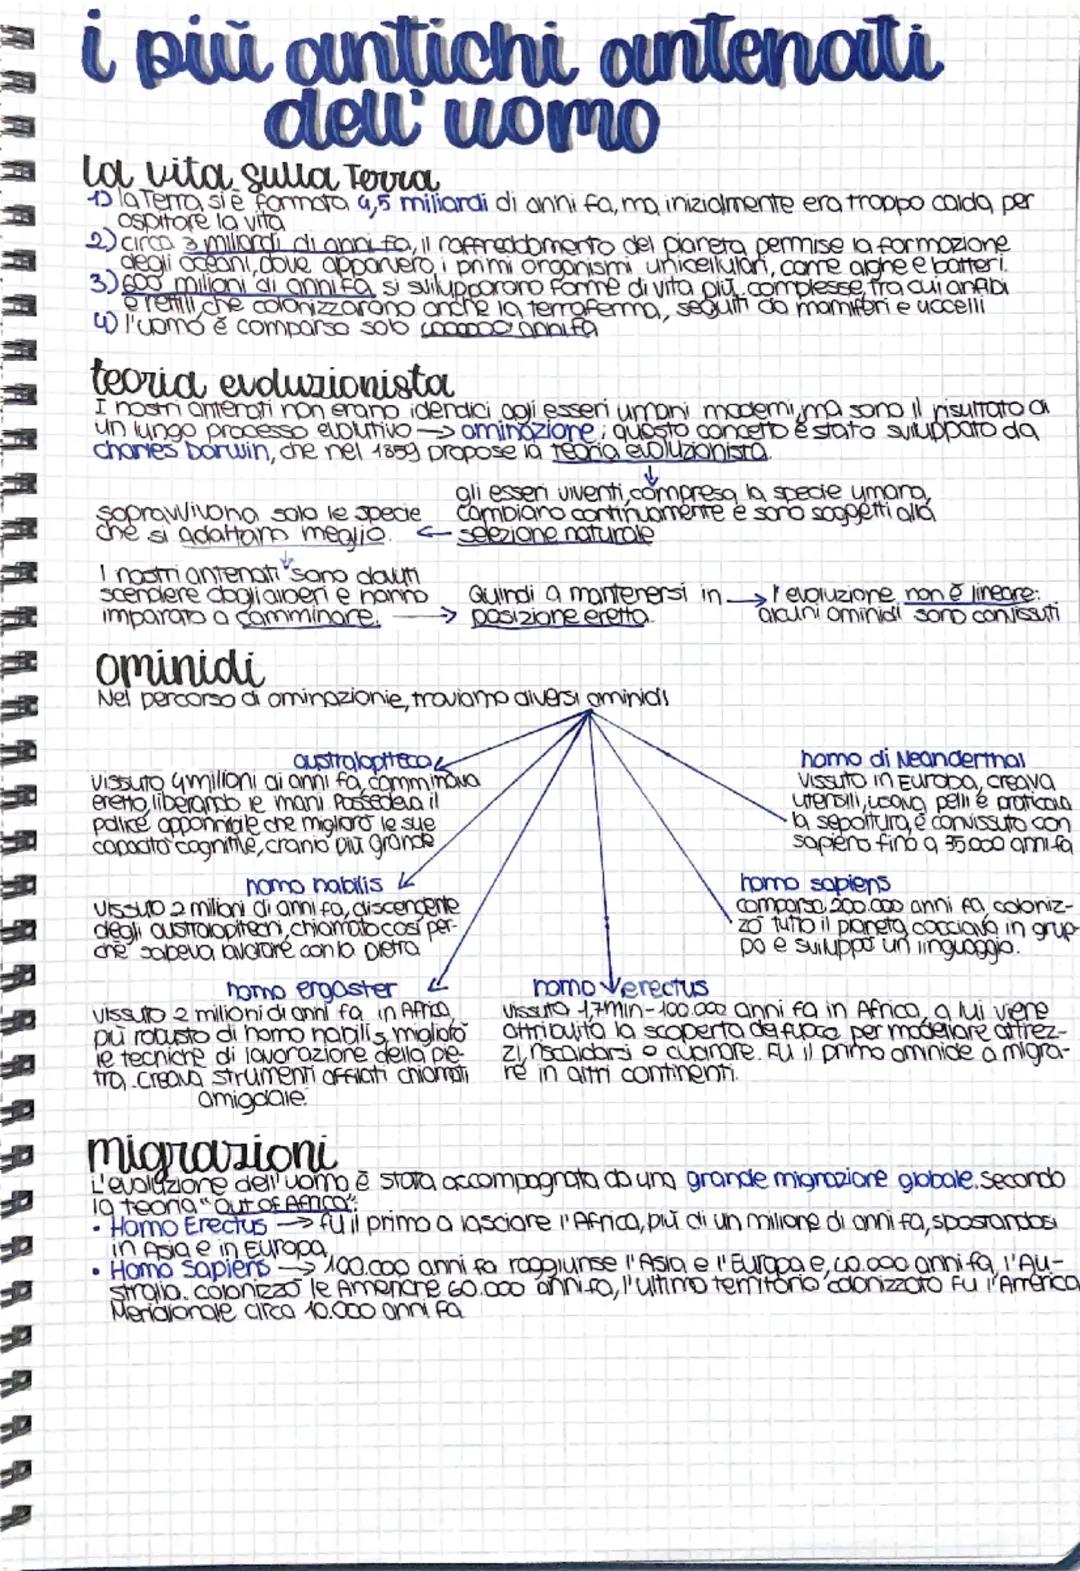 i più antichi antenati
dell' uomo
la vita sulla Terra
1) la Terra si è formata 4,5 miliardi di anni fa, ma inizialmente era troppo calda per
ospitare la vita
2) circa 3 miliardi di anni fa, il raffreddamento del pianeta permise la formazione
degli oceani, dove apparvero i primi organismi unicellulari, come alghe e batteri.
3) 600 milioni di anni fa si svilupparono forme di vita più complesse, tra cui anfibi
e rettili che colonizzarono anche la terraferma, seguiti da mammiferi e uccelli
4) l'uomo è comparso solo anni fa
teoria evoluzionista
I nostri antenati non erano idendici agli esseri umani moderni, ma sono il risultato di
un lungo processo evolutivo → ominazione; questo concetto è stato sviluppato da
charles Darwin, che nel 1859 propose la teoria evoluzionista.
gli esseri viventi, compresa la specie umana,
cambiano continuamente e sono soggetti alla
selezione naturale
sopravvivono solo le specie
che si adattano meglio. ←
I nostri antenati sono dovuti
scendere dagli alberi e hanno
imparato a camminare. →
Quindi a mantenersi in →
posizione eretta.
l'evoluzione non è lineare:
alcuni ominidi sono convissuti
ominidi
Nel percorso di ominazionie, troviamo diversi ominidi
australopiteco
vissuto 4 milioni di anni fa, camminava
eretto, liberando le mani. Possedeva il
pollice opponibile che migliorò le sue
capacità cognitive, cranio più grande
homo di Neanderthal
vissuto in Europa, creava
utensili, usava pelli e praticava
la sepoltura, è convissuto con
sapiens fino a 35.000 anni fa
homo habilis
vissuto 2 milioni di anni fa, discendente
degli australopitechi, chiamato così per-
chè sapeva lavorare con la pietra
homo sapiens
comparso 200.000 anni fa, coloniz-
zò tutto il pianeta, cacciava in grup-
po e sviluppò un linguaggio.
homo ergaster
vissuto 2 milioni di anni fa in Africa,
più robusto di homo habilis, migliorò
le tecniche di lavorazione della pie-
tra, creava strumenti affilati chiamati
amigdale.
homo erectus
vissuto 1,7mln-100.000 anni fa in Africa, a lui viene
attribuita la scoperta del fuoco per modellare attrez-
zi, riscaldarsi e cucinare. Fu il primo ominide a migra-
re in altri continenti.
migrazioni
L'evoluzione dell'uomo è stata accompagnata da una grande migrazione globale. Secondo
la teoria "Out of Africa":
• Homo Erectus → fu il primo a lasciare l'Africa, più di un milione di anni fa, spostandosi
in Asia e in Europa
• Homo Sapiens → 100.000 anni fa raggiunse l'Asia e l'Europa e, anni fa, l'Au-
stralia. colonizzò le Americhe 60.000 anni fa, l'ultimo territorio colonizzato fu l'America
Meridionale circa 10.000 anni fa